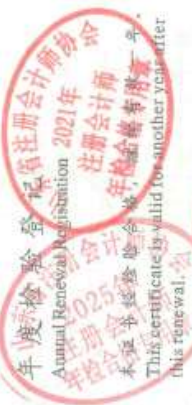 年度检验登记
Annual Renewal Registration
本证书经检验合格，继续有效一年。
This certificate is valid for another year after
this renewal.
省注册会计师协会
2021年
注册会计师
年检合格专用章
2025年
注册会计师
年检合格